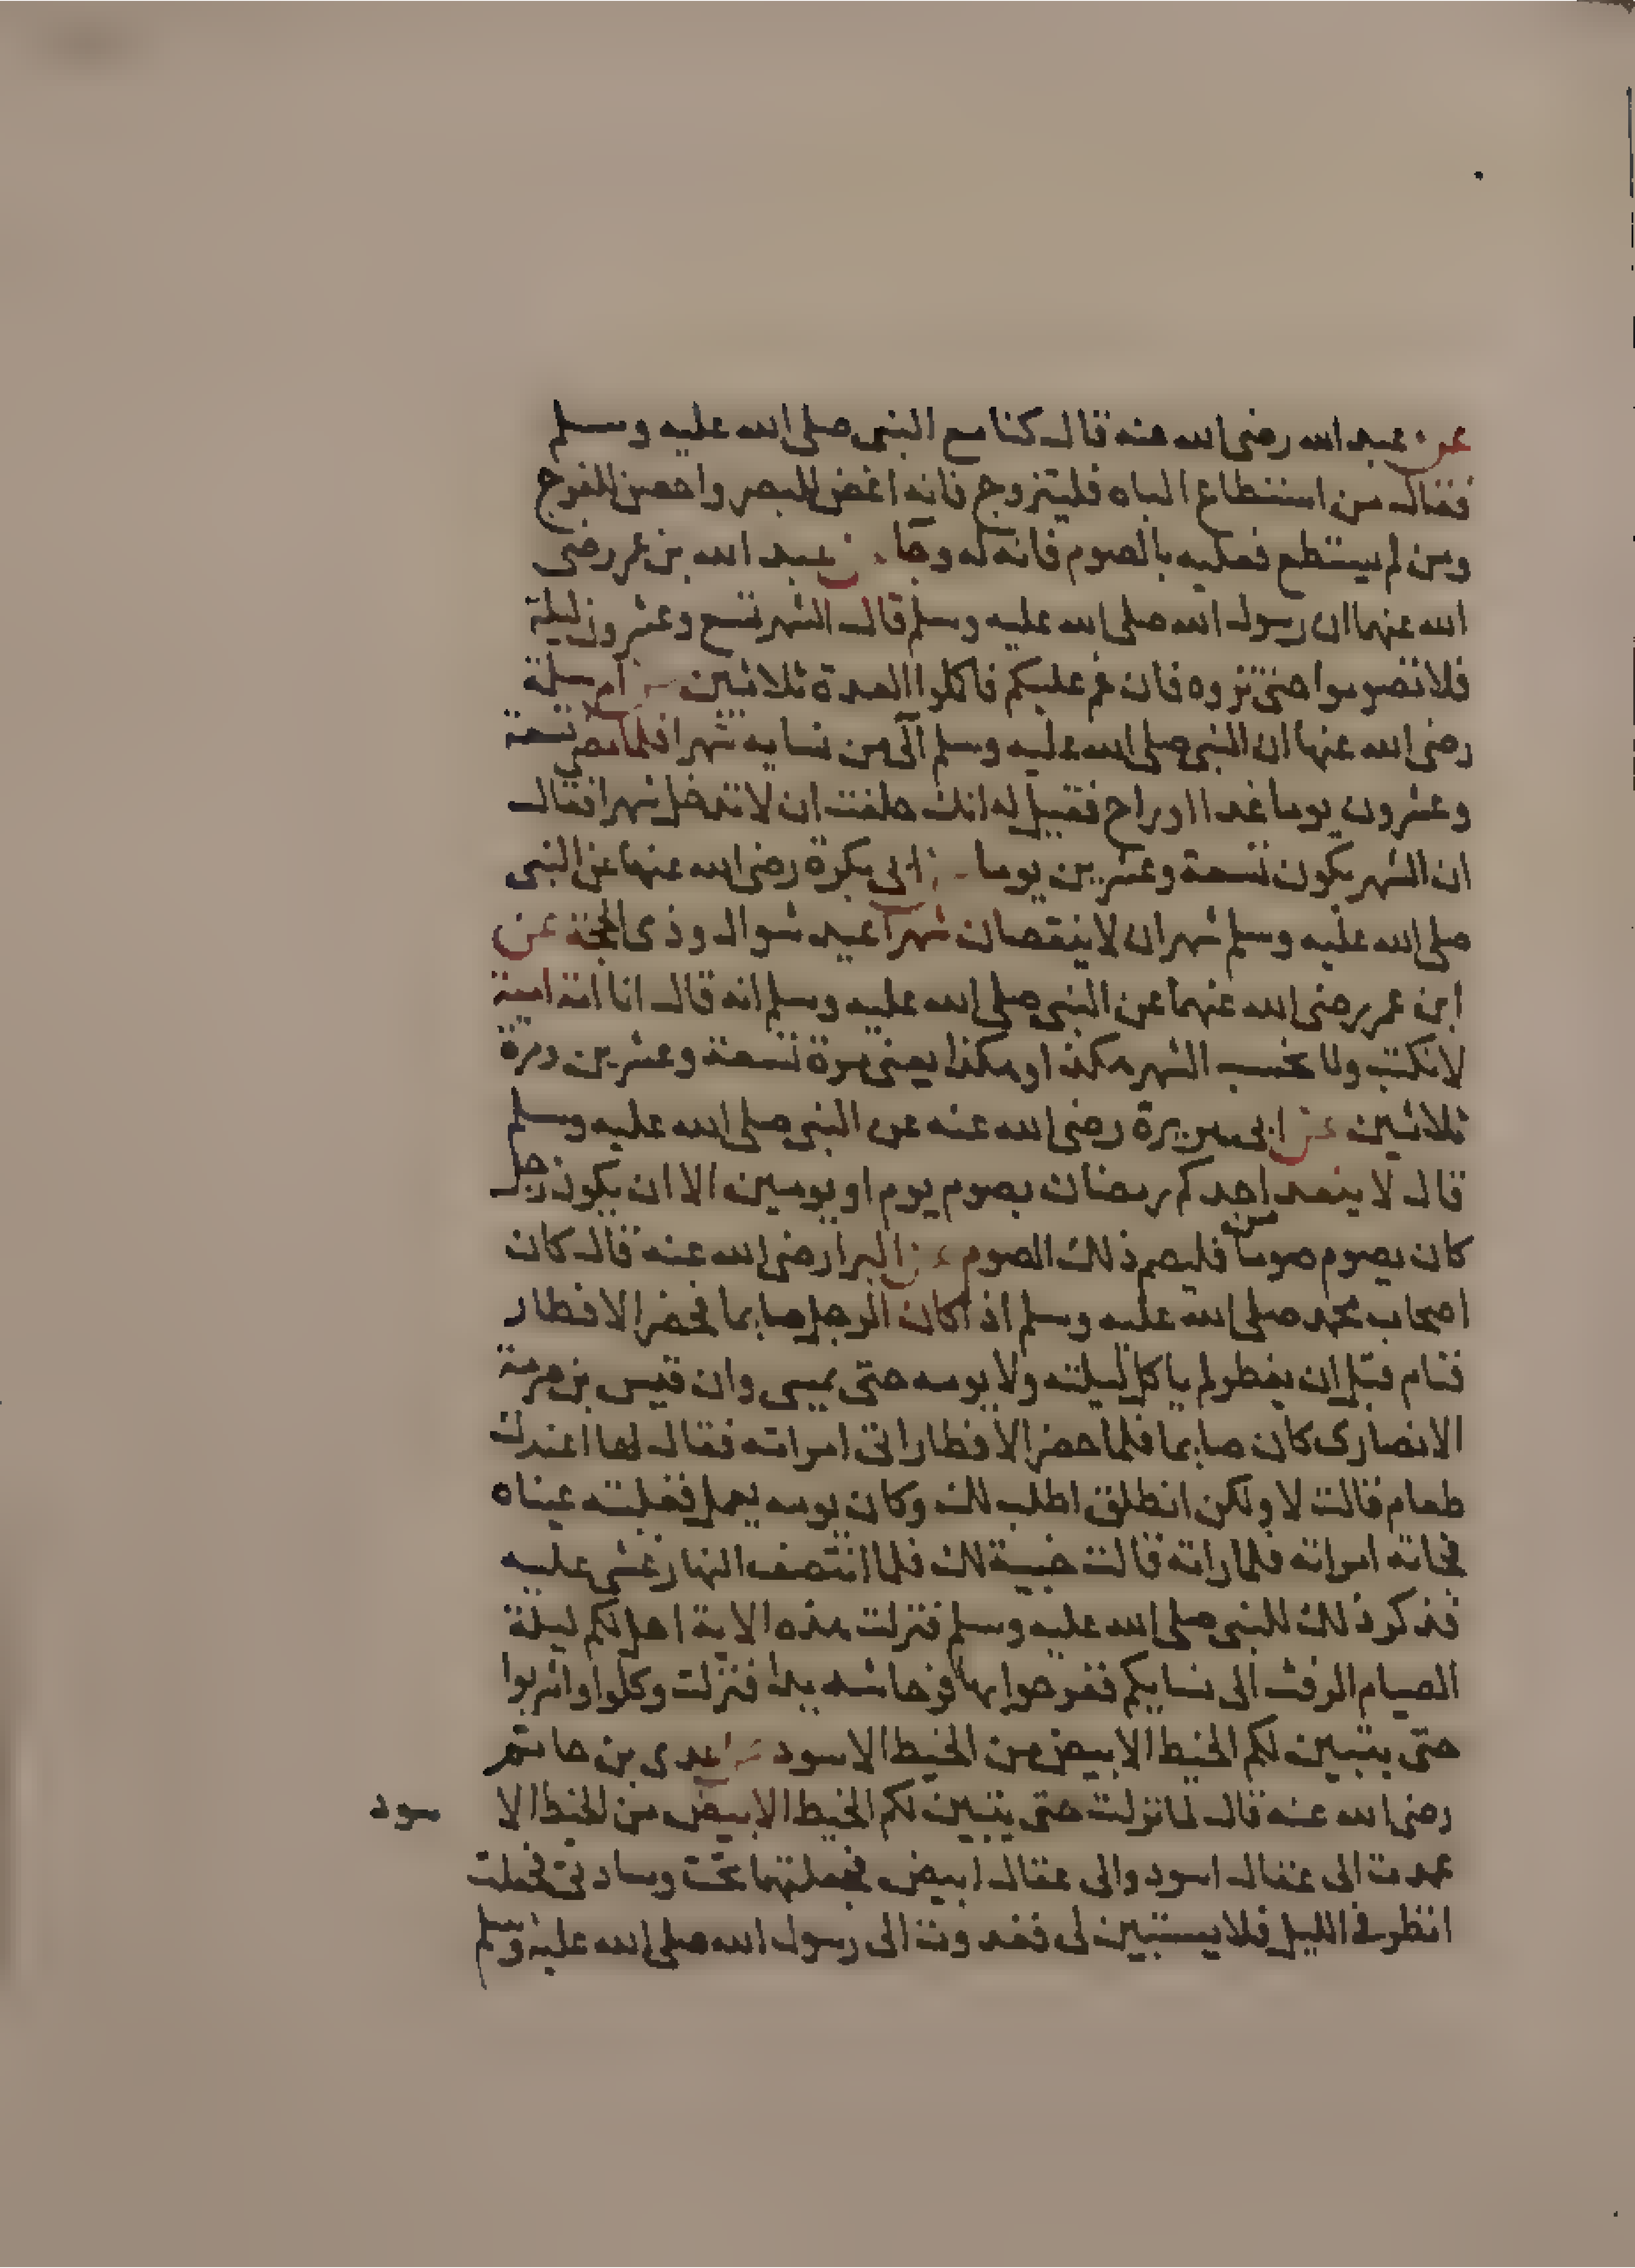 عن عبد الله رضي الله عنه قال كنا مع النبي صلى الله عليه وسلم
فقال من استطاع الباه فليتزوج فانه اغض للبصر واحصن للفرج
ومن لم يستطع فعليه بالصوم فانه له وجاء عن عبد الله بن عمر رضي
الله عنهما ان رسول الله صلى الله عليه وسلم قال الشهر تسع وعشرون ليلة
فلا تصوموا حتى تروه فان غم عليكم فاكلوا العدة ثلاثين عن ام سلمة
رضي الله عنها ان النبي صلى الله عليه وسلم آلى من نسايه شهرا فلما مضى تسعة
وعشرون يوما غدا او راح فقيل له انك حلفت ان لا تدخل شهرا فقال
ان الشهر يكون تسعة وعشرين يوما عن ابي بكرة رضي الله عنهما عن النبي
صلى الله عليه وسلم شهران لا ينقصان شهرا عيد شوال وذي الحجة عن
ابن عمر رضي الله عنهما عن النبي صلى الله عليه وسلم انه قال انا امة امية
لا نكتب ولا نحسب الشهر هكذا وهكذا يعني مرة تسعة وعشرين ومرة
ثلاثين عن ابي هريرة رضي الله عنه عن النبي صلى الله عليه وسلم
قال لا احدكم رمضان بصوم يوم او يومين الا ان يكون رجل
كان يصوم صوما فليصم ذلك الصوم عن البرا رضي الله عنه قال كان
اصحاب محمد صلى الله عليه وسلم اذا كان الرجل صايما فحضر الافطار
فنام قبل ان يفطر لم ياكل ليلته ولا يومه حتى يمسي وان قيس بن صرمة
الانصاري كان صايما فلما حضر الافطار اتى امراته فقال لها اعندك
طعام قالت لا ولكن انطلق اطلب لك وكان يومه يعمل فغلبته عيناه
فجاته امراته فلما راته قالت خيبة لك فلما انتصف النهار غشي عليه
فذكر ذلك للنبي صلى الله عليه وسلم فنزلت هذه الاية احل لكم ليلة
الصيام الرفث الى نسايكم ففرحوا بها فرحا شديدا فنزلت وكلوا واشربوا
حتى يتبين لكم الخيط الابيض من الخيط الاسود عن عدي بن حاتم
رضي الله عنه قال لما نزلت حتى يتبين لكم الخيط الابيض من الخيط الا سود
عمدت الى عقال اسود والى عقال ابيض فجعلتهما تحت وسادتي فجعلت
انظر في الليل فلا يستبين لي فغدوت الى رسول الله صلى الله عليه وسلم